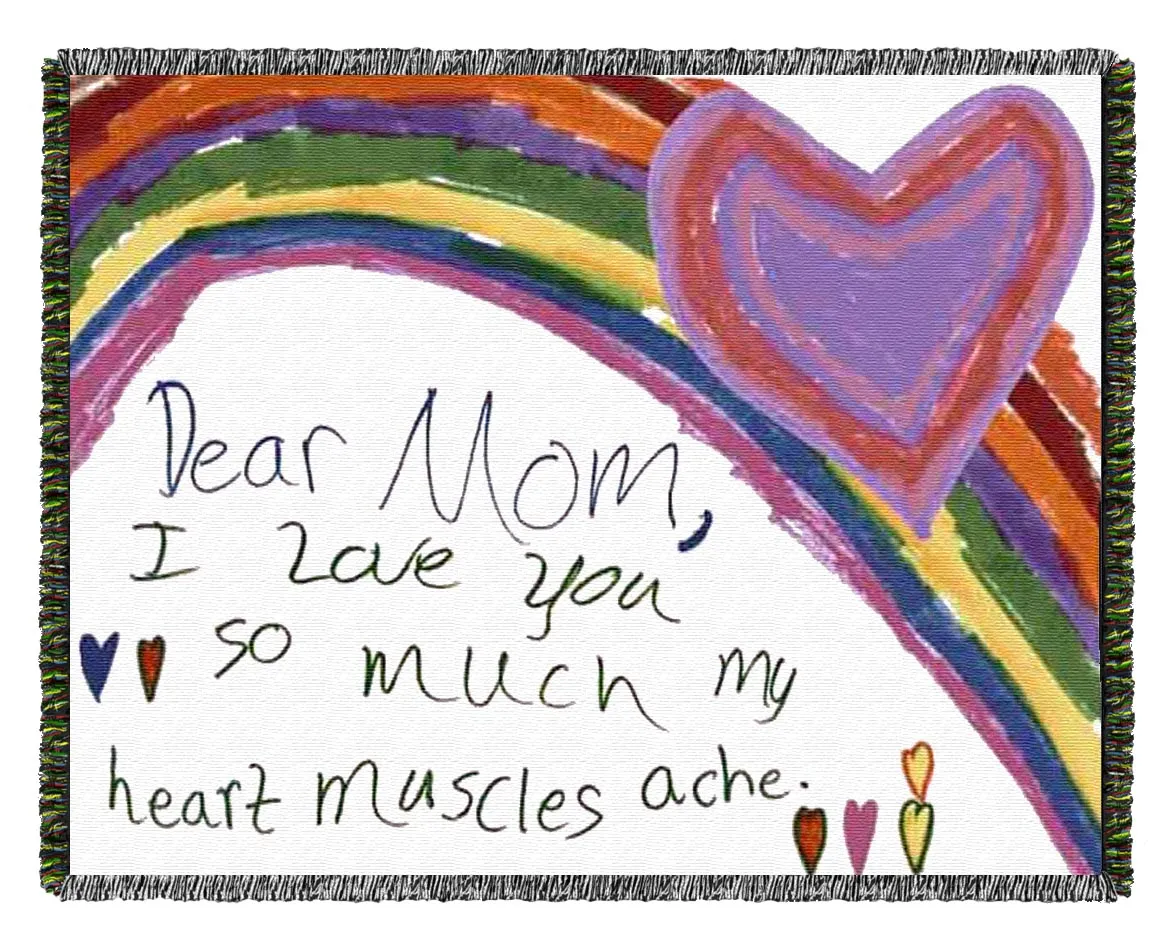 Dear Mom,
I Love you
so much my
heart muscles ache.